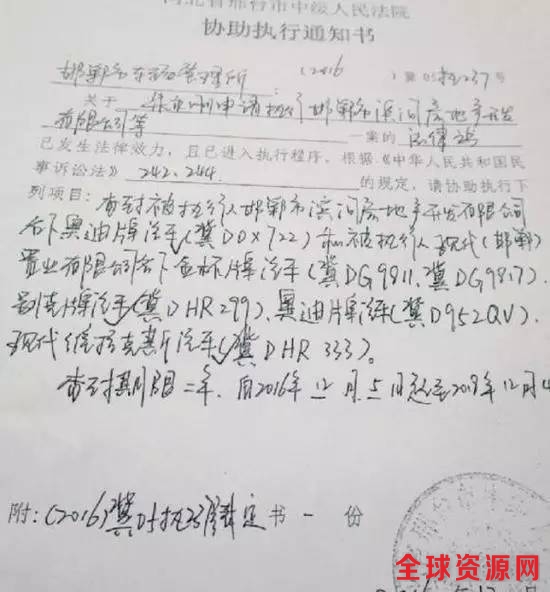 河北省邢台市中级人民法院
协助执行通知书
邯郸市车辆管理所 (2016) 237号
关于 申请执行邯郸市滨河房地产开发
有限公司等 一案的 法律
已发生法律效力，且已进入执行程序。根据《中华人民共和国民
事诉讼法》242、244 的规定，请协助执行下
列项目：查封被执行人邯郸市滨河房地产开发有限公司
名下奥迪牌汽车(冀DDX722)和被执行人现代(邯郸)
置业有限公司名下金杯牌汽车(冀DG9811、冀DG9817)、
别克牌汽车(冀DHR299)、奥迪牌汽车(冀D952QV)、
现代维拉克斯汽车(冀DHR333)。
查封期限二年，自2016年12月5日起至2019年12月4
附：(2016)冀05执 裁定书一份
全球资源网